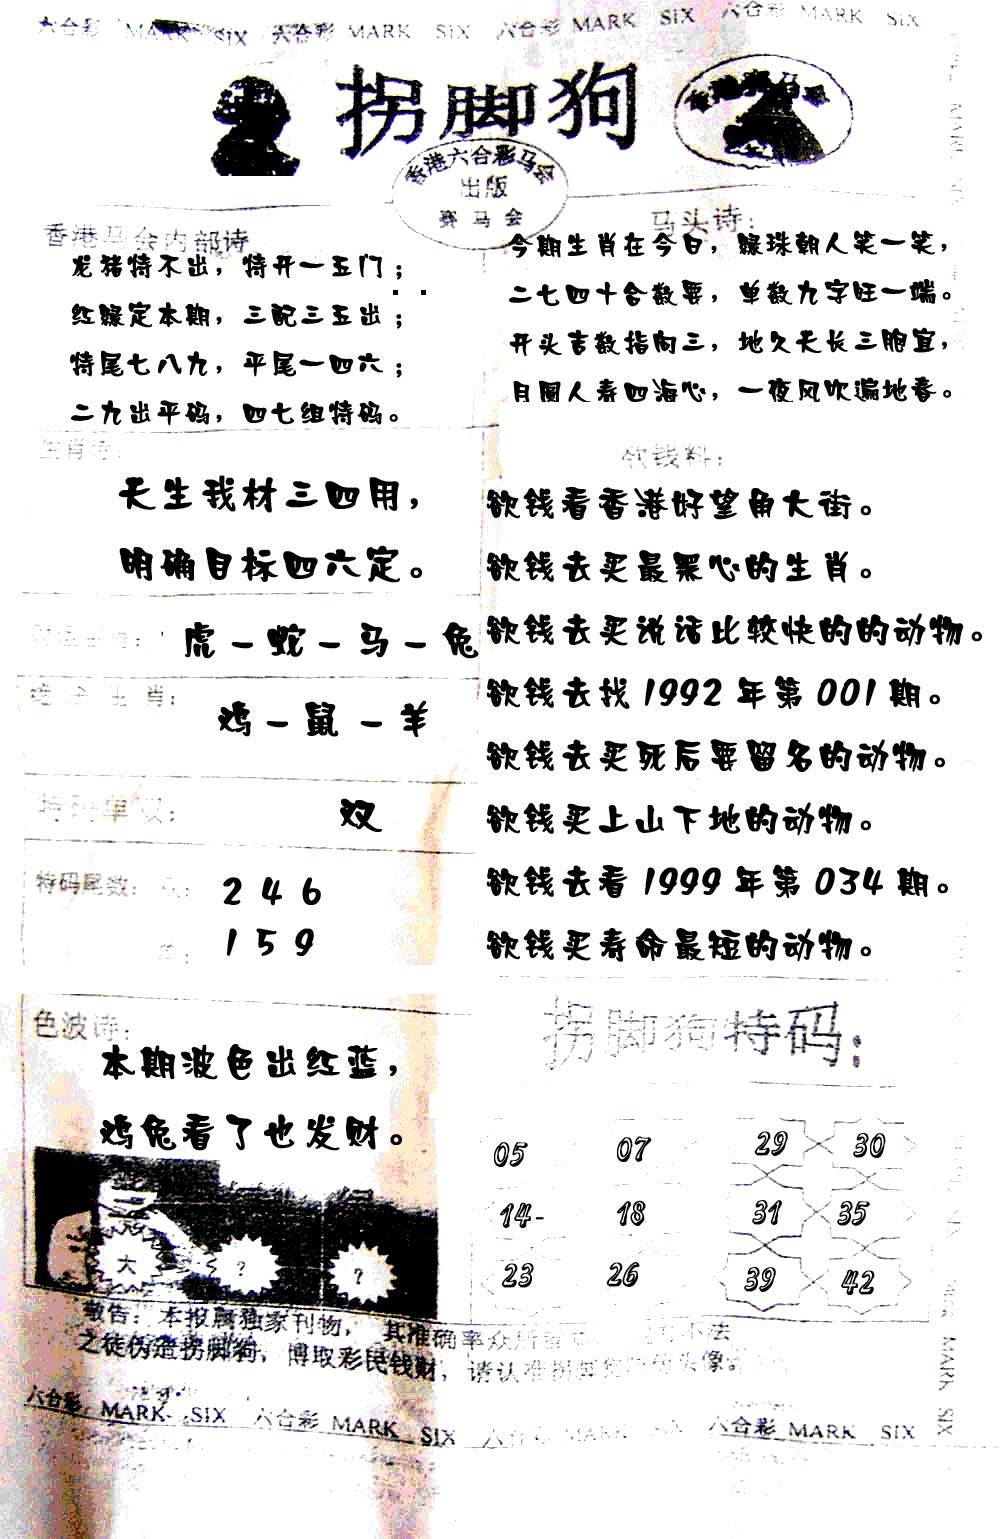 六合彩 MARK SIX 六合彩 MARK SIX 六合彩 MARK SIX 六合彩 MARK SIX
拐脚狗
香港六合彩马会
出版
赛马会
香港马会内部诗
龙猪特不出，特开一五门；
红绿定本期，三配三五出；
特尾七八九，平尾一四六；
二九出平码，四七组特码。
马头诗：
今期生肖在今日，绿珠朝人笑一笑，
二七四十合数要，单数九字旺一端。
开头吉数指向三，地久天长三胞宜，
月圆人寿四海心，一夜风吹遍地春。
生肖诗：
天生我材三四用，
明确目标四六定。
虎－蛇－马－兔
生肖：
鸡－鼠－羊
特码单双：
双
特码尾数：
2 4 6
1 5 9
欲钱料：
欲钱看香港好望角大街。
欲钱去买最黑心的生肖。
欲钱去买说话比较快的的动物。
欲钱去找1992年第001期。
欲钱去买死后要留名的动物。
欲钱买上山下地的动物。
欲钱去看1999年第034期。
欲钱买寿命最短的动物。
色波诗：
本期波色出红蓝，
鸡兔看了也发财。
大 ？ ？
拐脚狗特码：
05 07 29 30
14- 18 31 35
23 26 39 42
敬告：本报属独家刊物，其准确率众所 不法
之徒伪造拐脚狗，博取彩民钱财，请认准拐脚狗 头像
六合彩 MARK SIX 六合彩 MARK SIX 六合彩 MARK SIX 六合彩 MARK SIX
MARK SIX